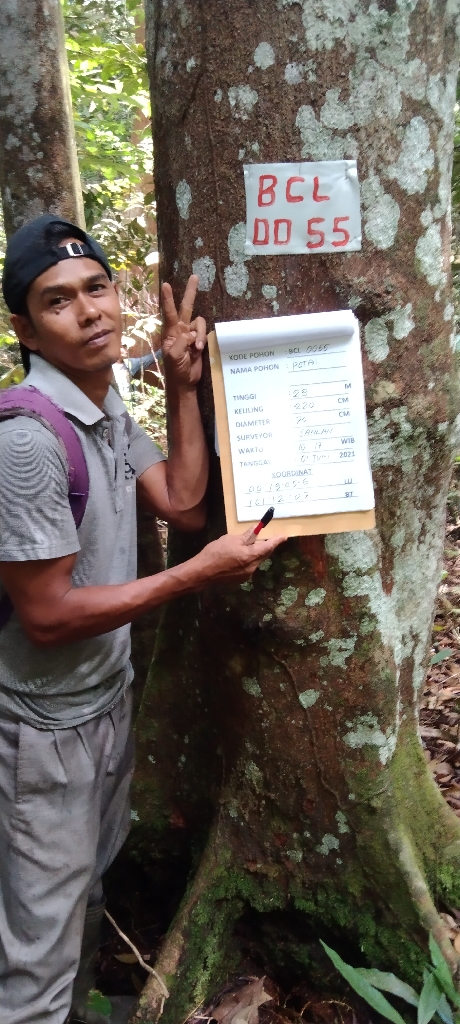 BCL
00 55
KODE POHON : BCL 0055
NAMA POHON : POTAI
TINGGI : 25 M
KELILING : 220 CM
DIAMETER : 70 CM
SURVEYOR
WAKTU : 10 17 WIB
TANGGAL : 01 JUNI 2021
KOORDINAT
LU
BT